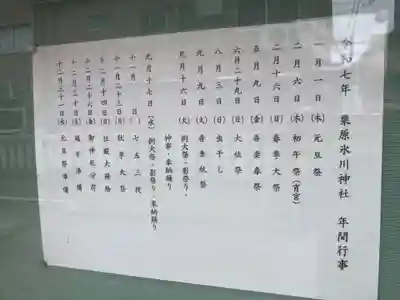 令和七年　栗原氷川神社　年間行事
一月一日(水)　元旦祭
二月六日(木)　初午祭(宵宮)
二月十六日(日)　春季大祭
五月九日(金)　善楽春祭
六月二十九日(日)　大祓祭
八月三日(日)　虫干し
九月九日(火)
九月十六日(火)　例大祭・影祭り・
神事・奉納踊り
九月十七日(水)　例大祭・影祭り・奉納踊り
十一月　日(　)　七五三祝
十一月二十三日(日)　秋季大祭
十二月十四日(日)
十二月二十六日(金)　御神札分荷
十二月二十八日(日)
十二月三十一日(水)　元旦祭準備